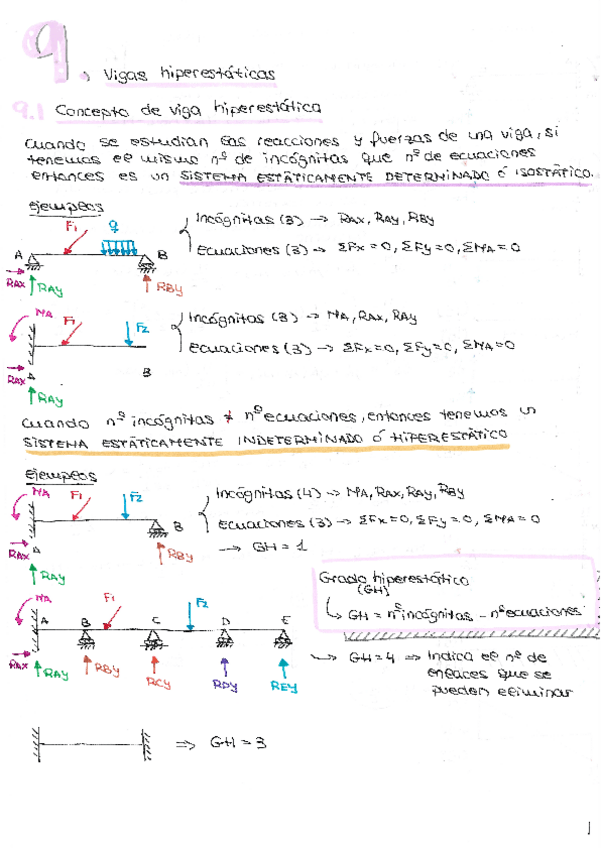 9. Vigas hiperestáticas
9.1 Concepto de viga hiperestática
Cuando se estudian las reacciones y fuerzas de una viga, si
tenemos el mismo nº de incógnitas que nº de ecuaciones
entonces es un SISTEMA ESTÁTICAMENTE DETERMINADO Ó ISOSTÁTICO.
ejemplos
F1 q
A B
RAX RAY RBY
Incógnitas (3) → RAX, RAY, RBY
Ecuaciones (3) → ΣFx = 0, ΣFy = 0, ΣMA = 0
MA F1 F2
RAX A B
RAY
Incógnitas (3) → MA, RAX, RAY
Ecuaciones (3) → ΣFx = 0, ΣFy = 0, ΣMA = 0
Cuando nº incógnitas ≠ nº ecuaciones, entonces tenemos un
SISTEMA ESTÁTICAMENTE INDETERMINADO Ó HIPERESTÁTICO
Ejemplos
MA F1 F2
B
RAX A RBY
RAY
Incógnitas (4) → MA, RAX, RAY, RBY
Ecuaciones (3) → ΣFx = 0, ΣFy = 0, ΣMA = 0
→ GH = 1
Grado hiperestático
(GH)
↳ GH = nº incógnitas - nº ecuaciones
MA F1 F2
A B C D E
RAX RAY RBY RCY RDY REY
↳ GH = 4 ⇒ Indica el nº de
enlaces que se
pueden eliminar
⇒ GH = 3
1